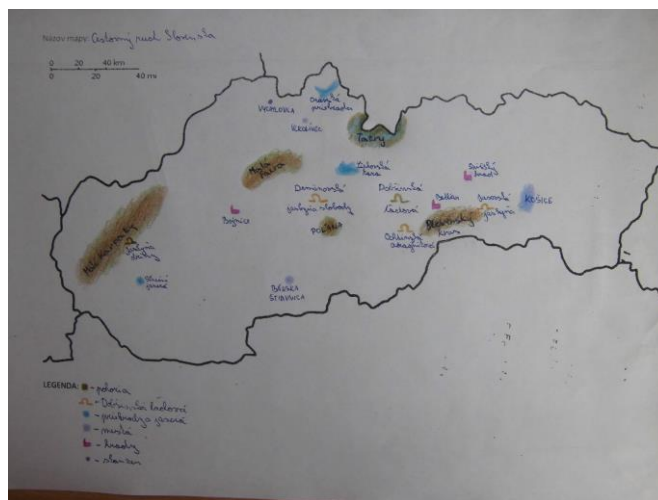 Názov mapy: Cestovný ruch Slovenska
0 20 40 km
0 20 40 mi
VYCHLOVKA
Oravská priehrada
Tatry
Malá Fatra
Liptovská Mara
Spišský hrad
Demänovská jaskyňa slobody
Dobšinská ľadová
Betliar
KOŠICE
Bojnice
POĽANA
Slovenský kras
Ochtinská aragonitová
Malé Karpaty
Slnečné jazerá
BANSKÁ ŠTIAVNICA
LEGENDA: - pohoria
- Dobšinská ľadová
- priehrady a jazerá
- mestá
- hrady
- skanzen